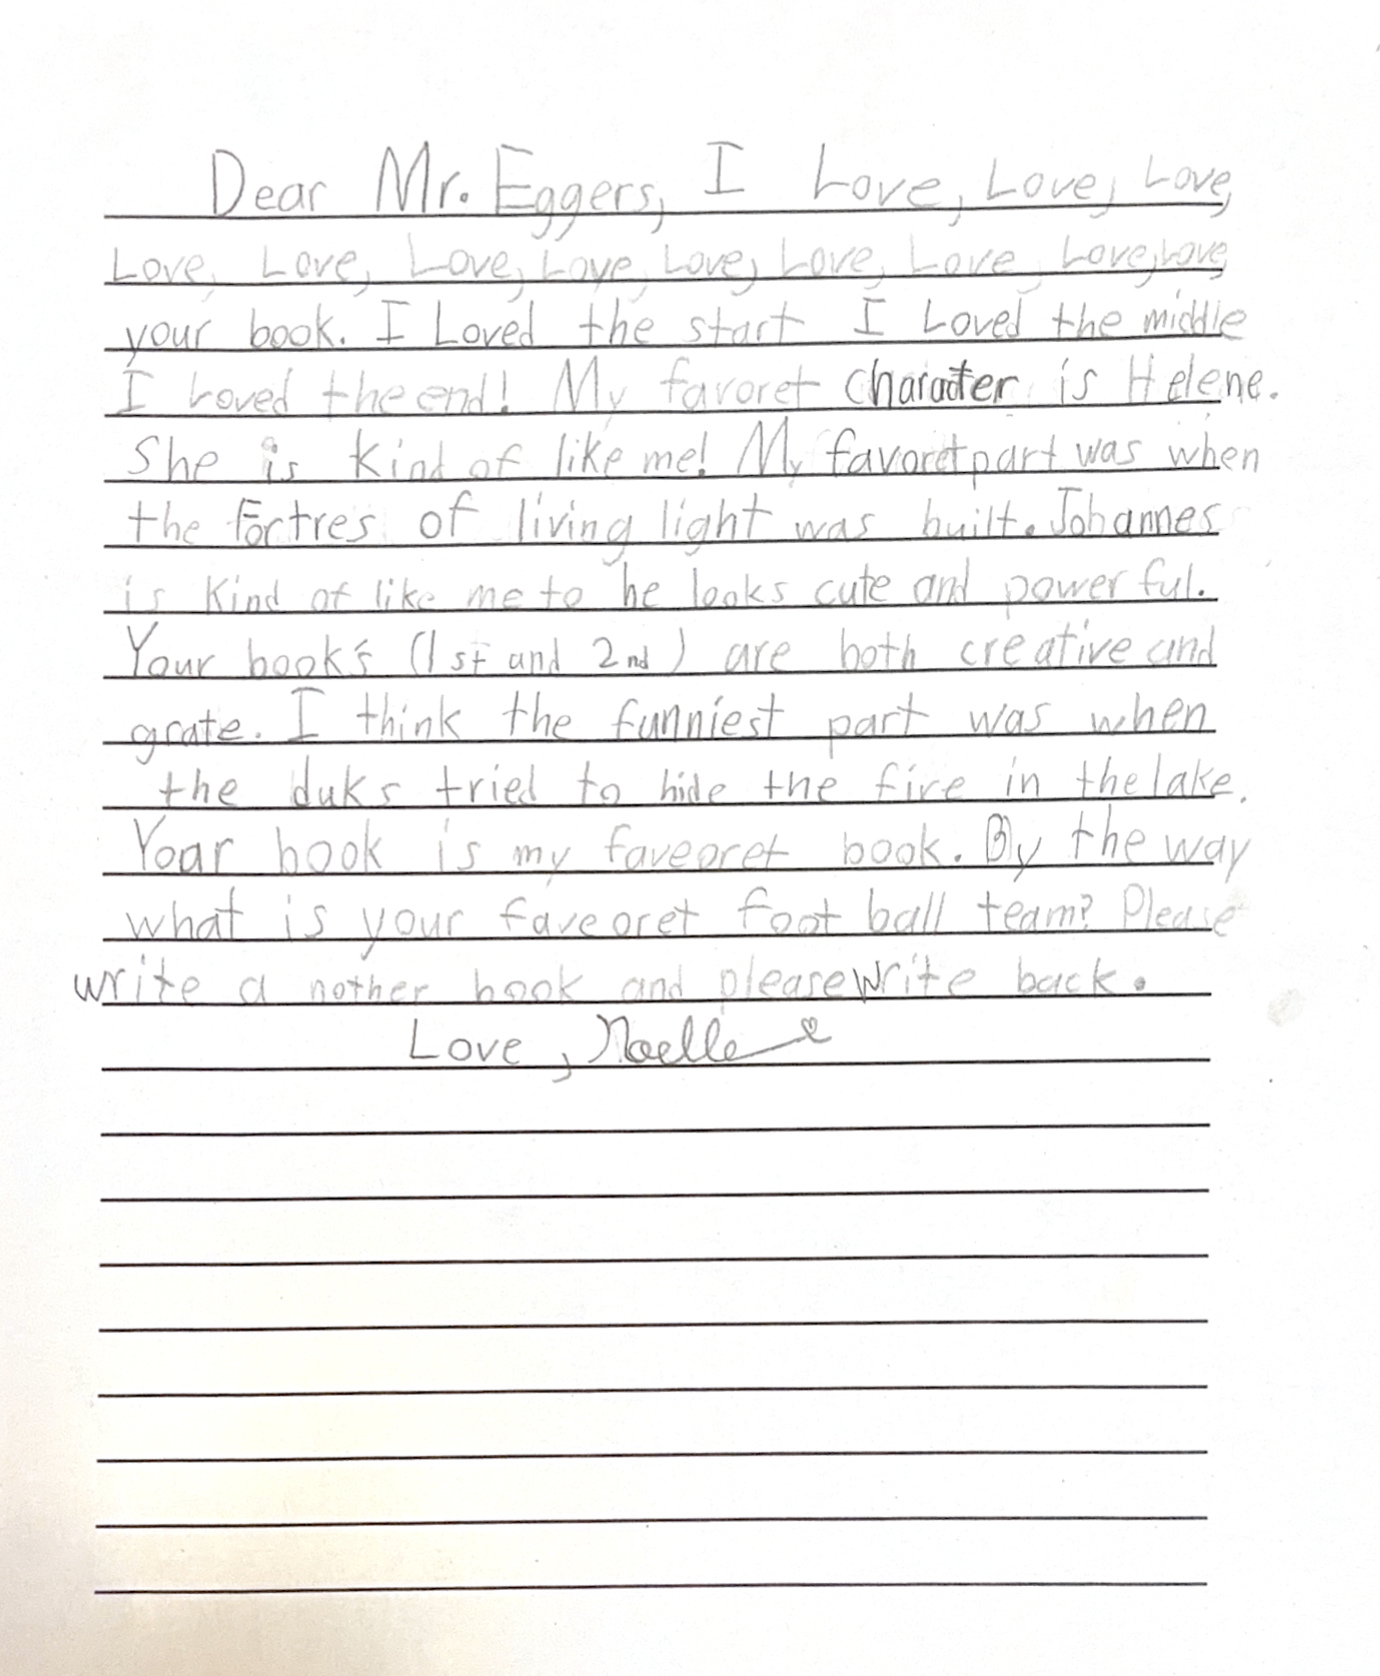 Dear Mr. Eggers, I Love, Love, Love,
Love, Love, Love, Love, Love, Love, Love, Love, Love,
your book. I Loved the start I Loved the middle
I Loved the end! My favoret character is Helene.
She is kind of like me! My favoret part was when
the Fortres of living light was built. Johannes
is kind of like me to he looks cute and powerful.
Your book's (1st and 2nd) are both creative and
grate. I think the funniest part was when
the duks tried to hide the fire in the lake.
Yoar book is my faveoret book. By the way
what is your faveoret foot ball team? Please
write a nother book and please write back.
Love, Noelle